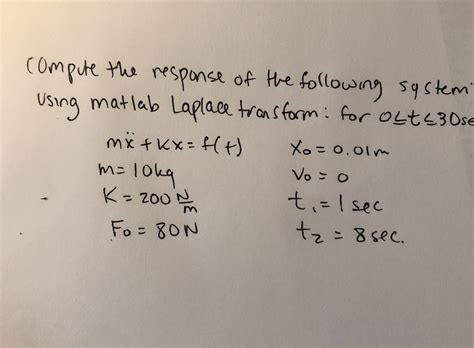 Compute the response of the following system
using matlab Laplace transform: for 0≤t≤30se
mẍ + Kx = f(t) X₀ = 0.01m
m = 10kg V₀ = 0
K = 200 N/m t₁ = 1 sec
F₀ = 80N t₂ = 8 sec.